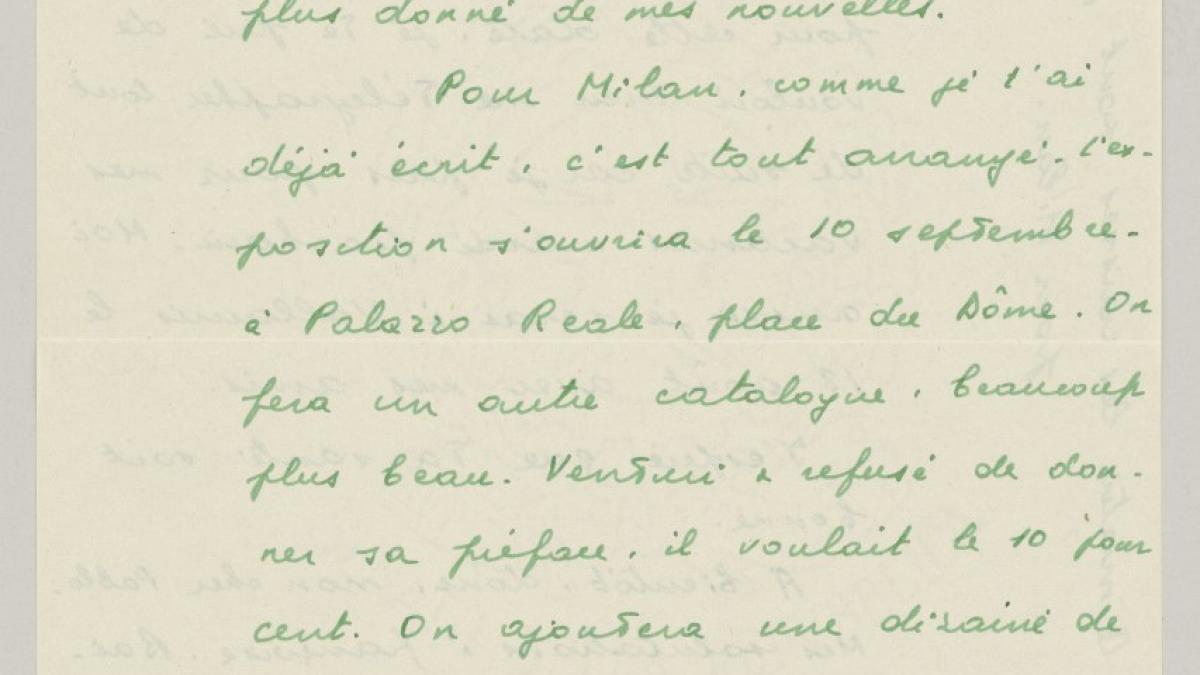 plus donné de mes nouvelles.
Pour Milan, comme je t'ai
déjà écrit, c'est tout arrangé. L'ex-
position s'ouvrira le 10 septembre.
à Palazzo Reale, place du Dôme. On
fera un autre catalogue, beaucoup
plus beau. Venturi a refusé de don-
ner sa préface, il voulait le 10 pour
cent. On ajoutera une dizaine de